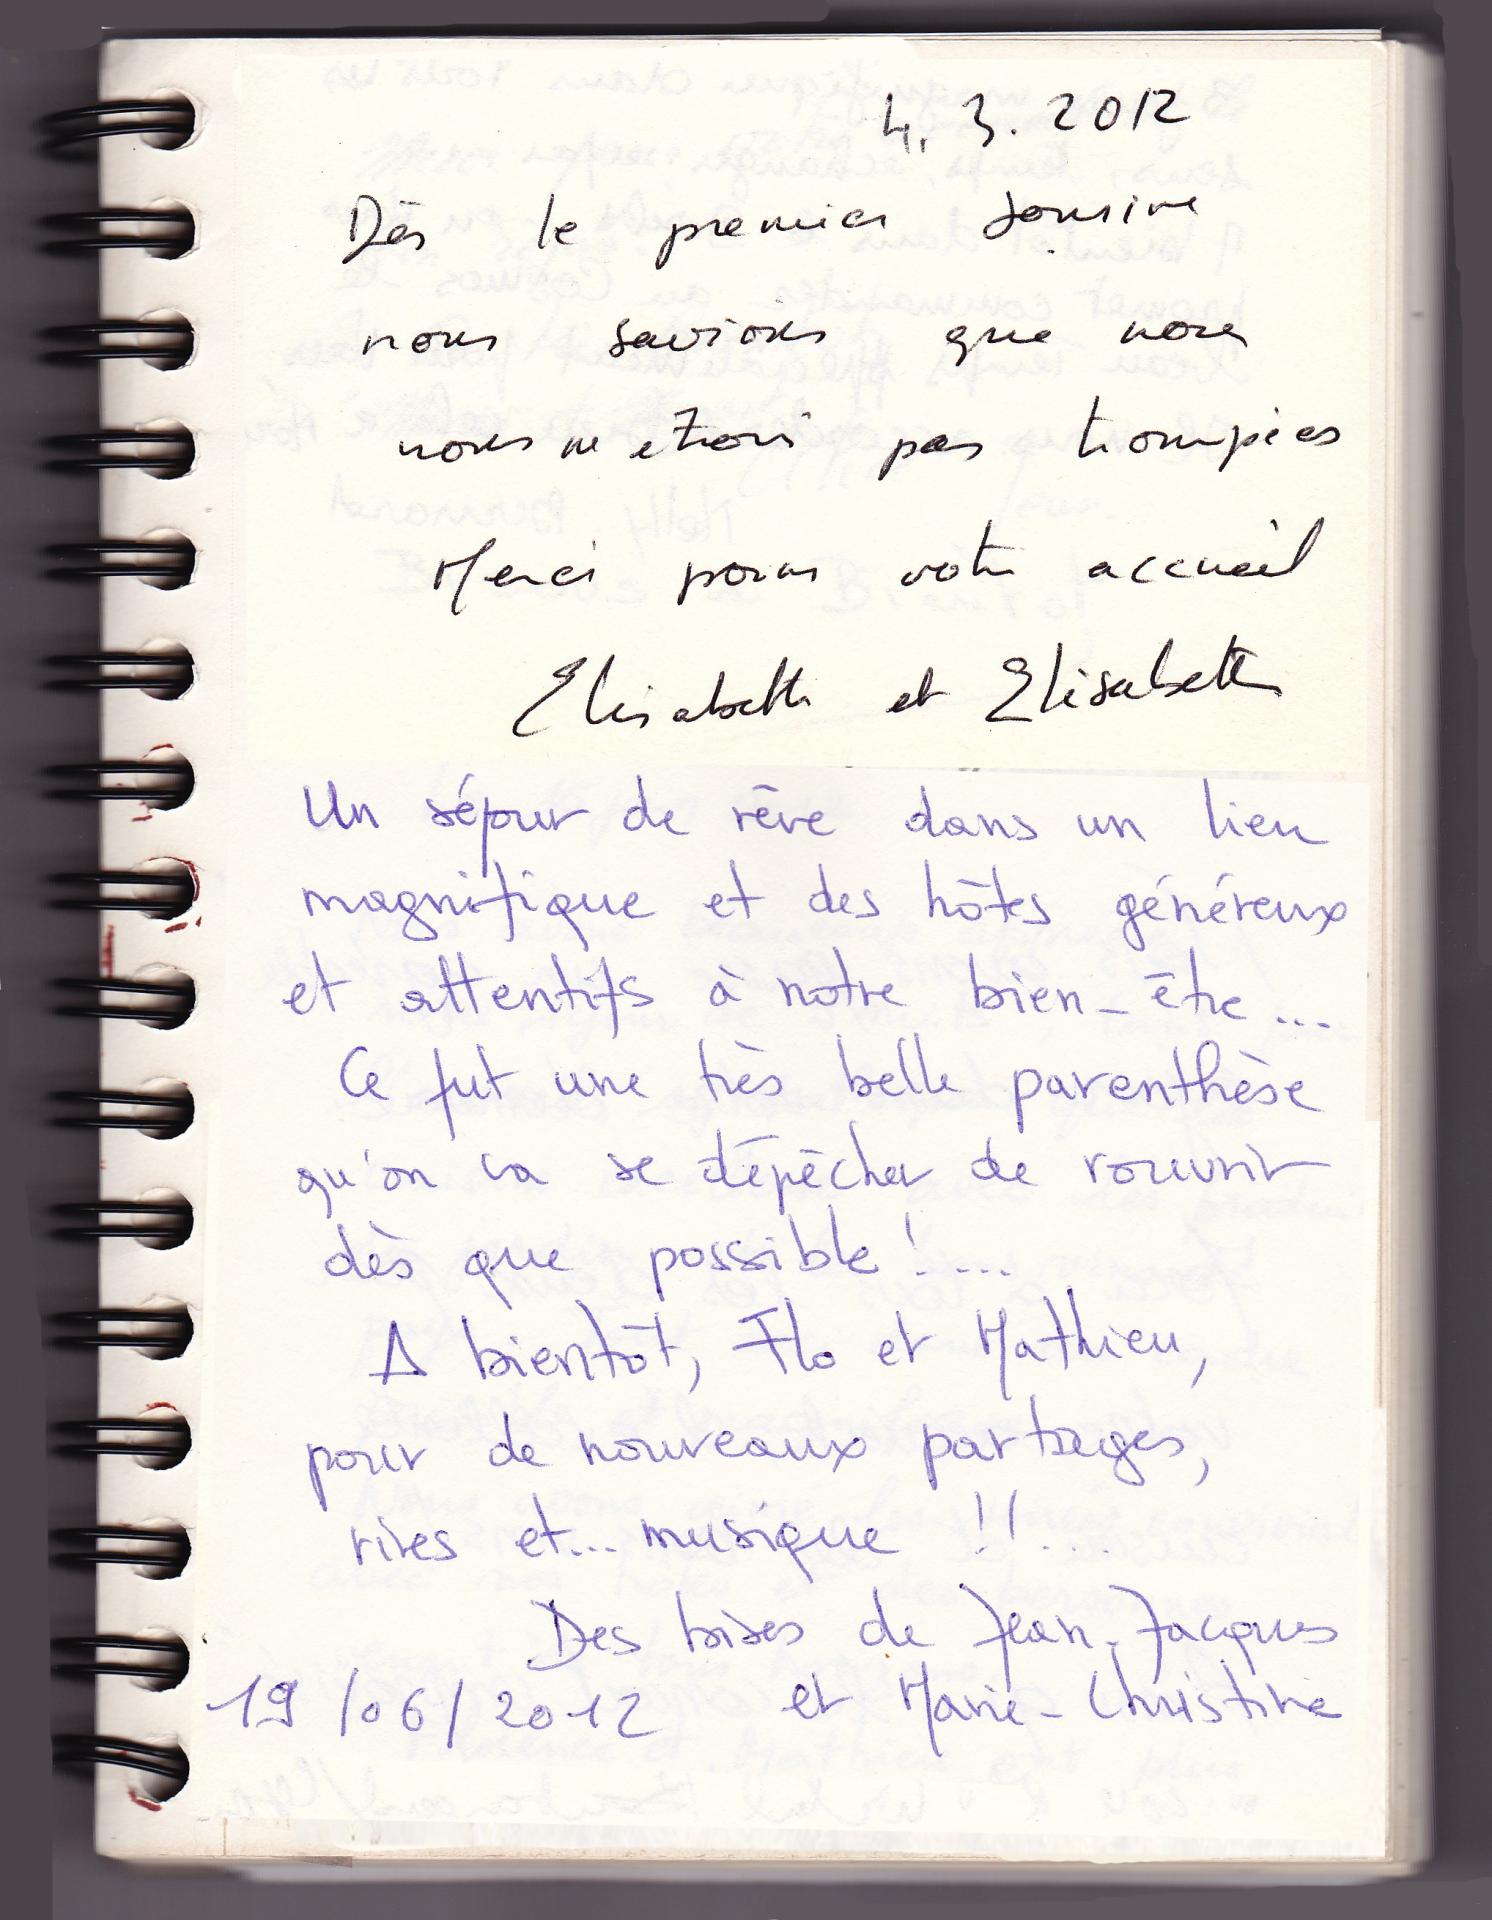 4. 3. 2012
Dès le premier sourire
nous savions que nous
nous n'étions pas trompées
Merci pour votre accueil
Elisabeth et Elisabeth
Un séjour de rêve dans un lieu
magnifique et des hôtes généreux
et attentifs à notre bien-être...
Ce fut une très belle parenthèse
qu'on va se dépêcher de rouvrir
dès que possible !...
A bientôt, Flo et Mathieu,
pour de nouveaux partages,
rires et... musique !!...
Des bises de Jean-Jacques
19/06/2012 et Marie-Christine